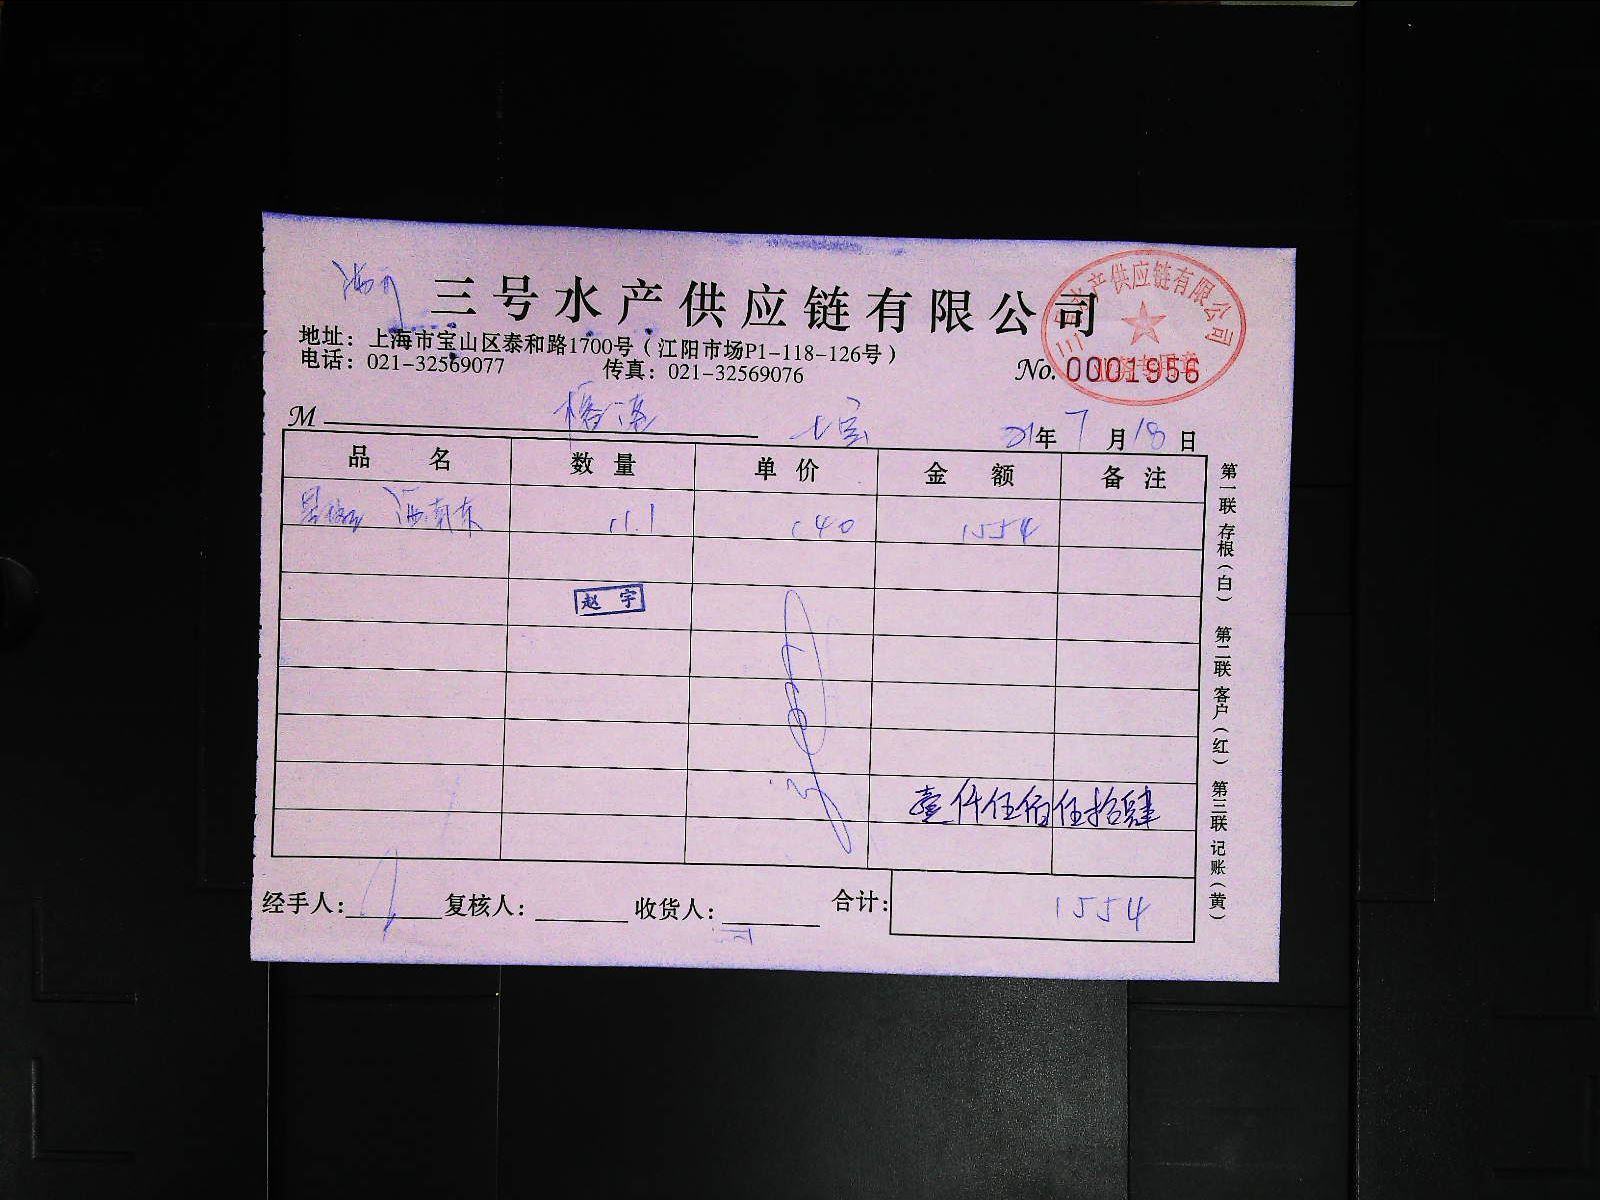 三号水产供应链有限公司
地址：上海市宝山区泰和路1700号（江阳市场P1-118-126号）
电话：021-32569077 传真：021-32569076
No. 0001956
三号水产供应链有限公司
M 七宝 21年7月18日
品名 数量 单价 金额 备注
海南东 11.1 140 1554
赵宇
壹仟伍佰伍拾肆
经手人： 复核人： 收货人： 合计： 1554
第一联 存根（白） 第二联 客户（红） 第三联 记账（黄）